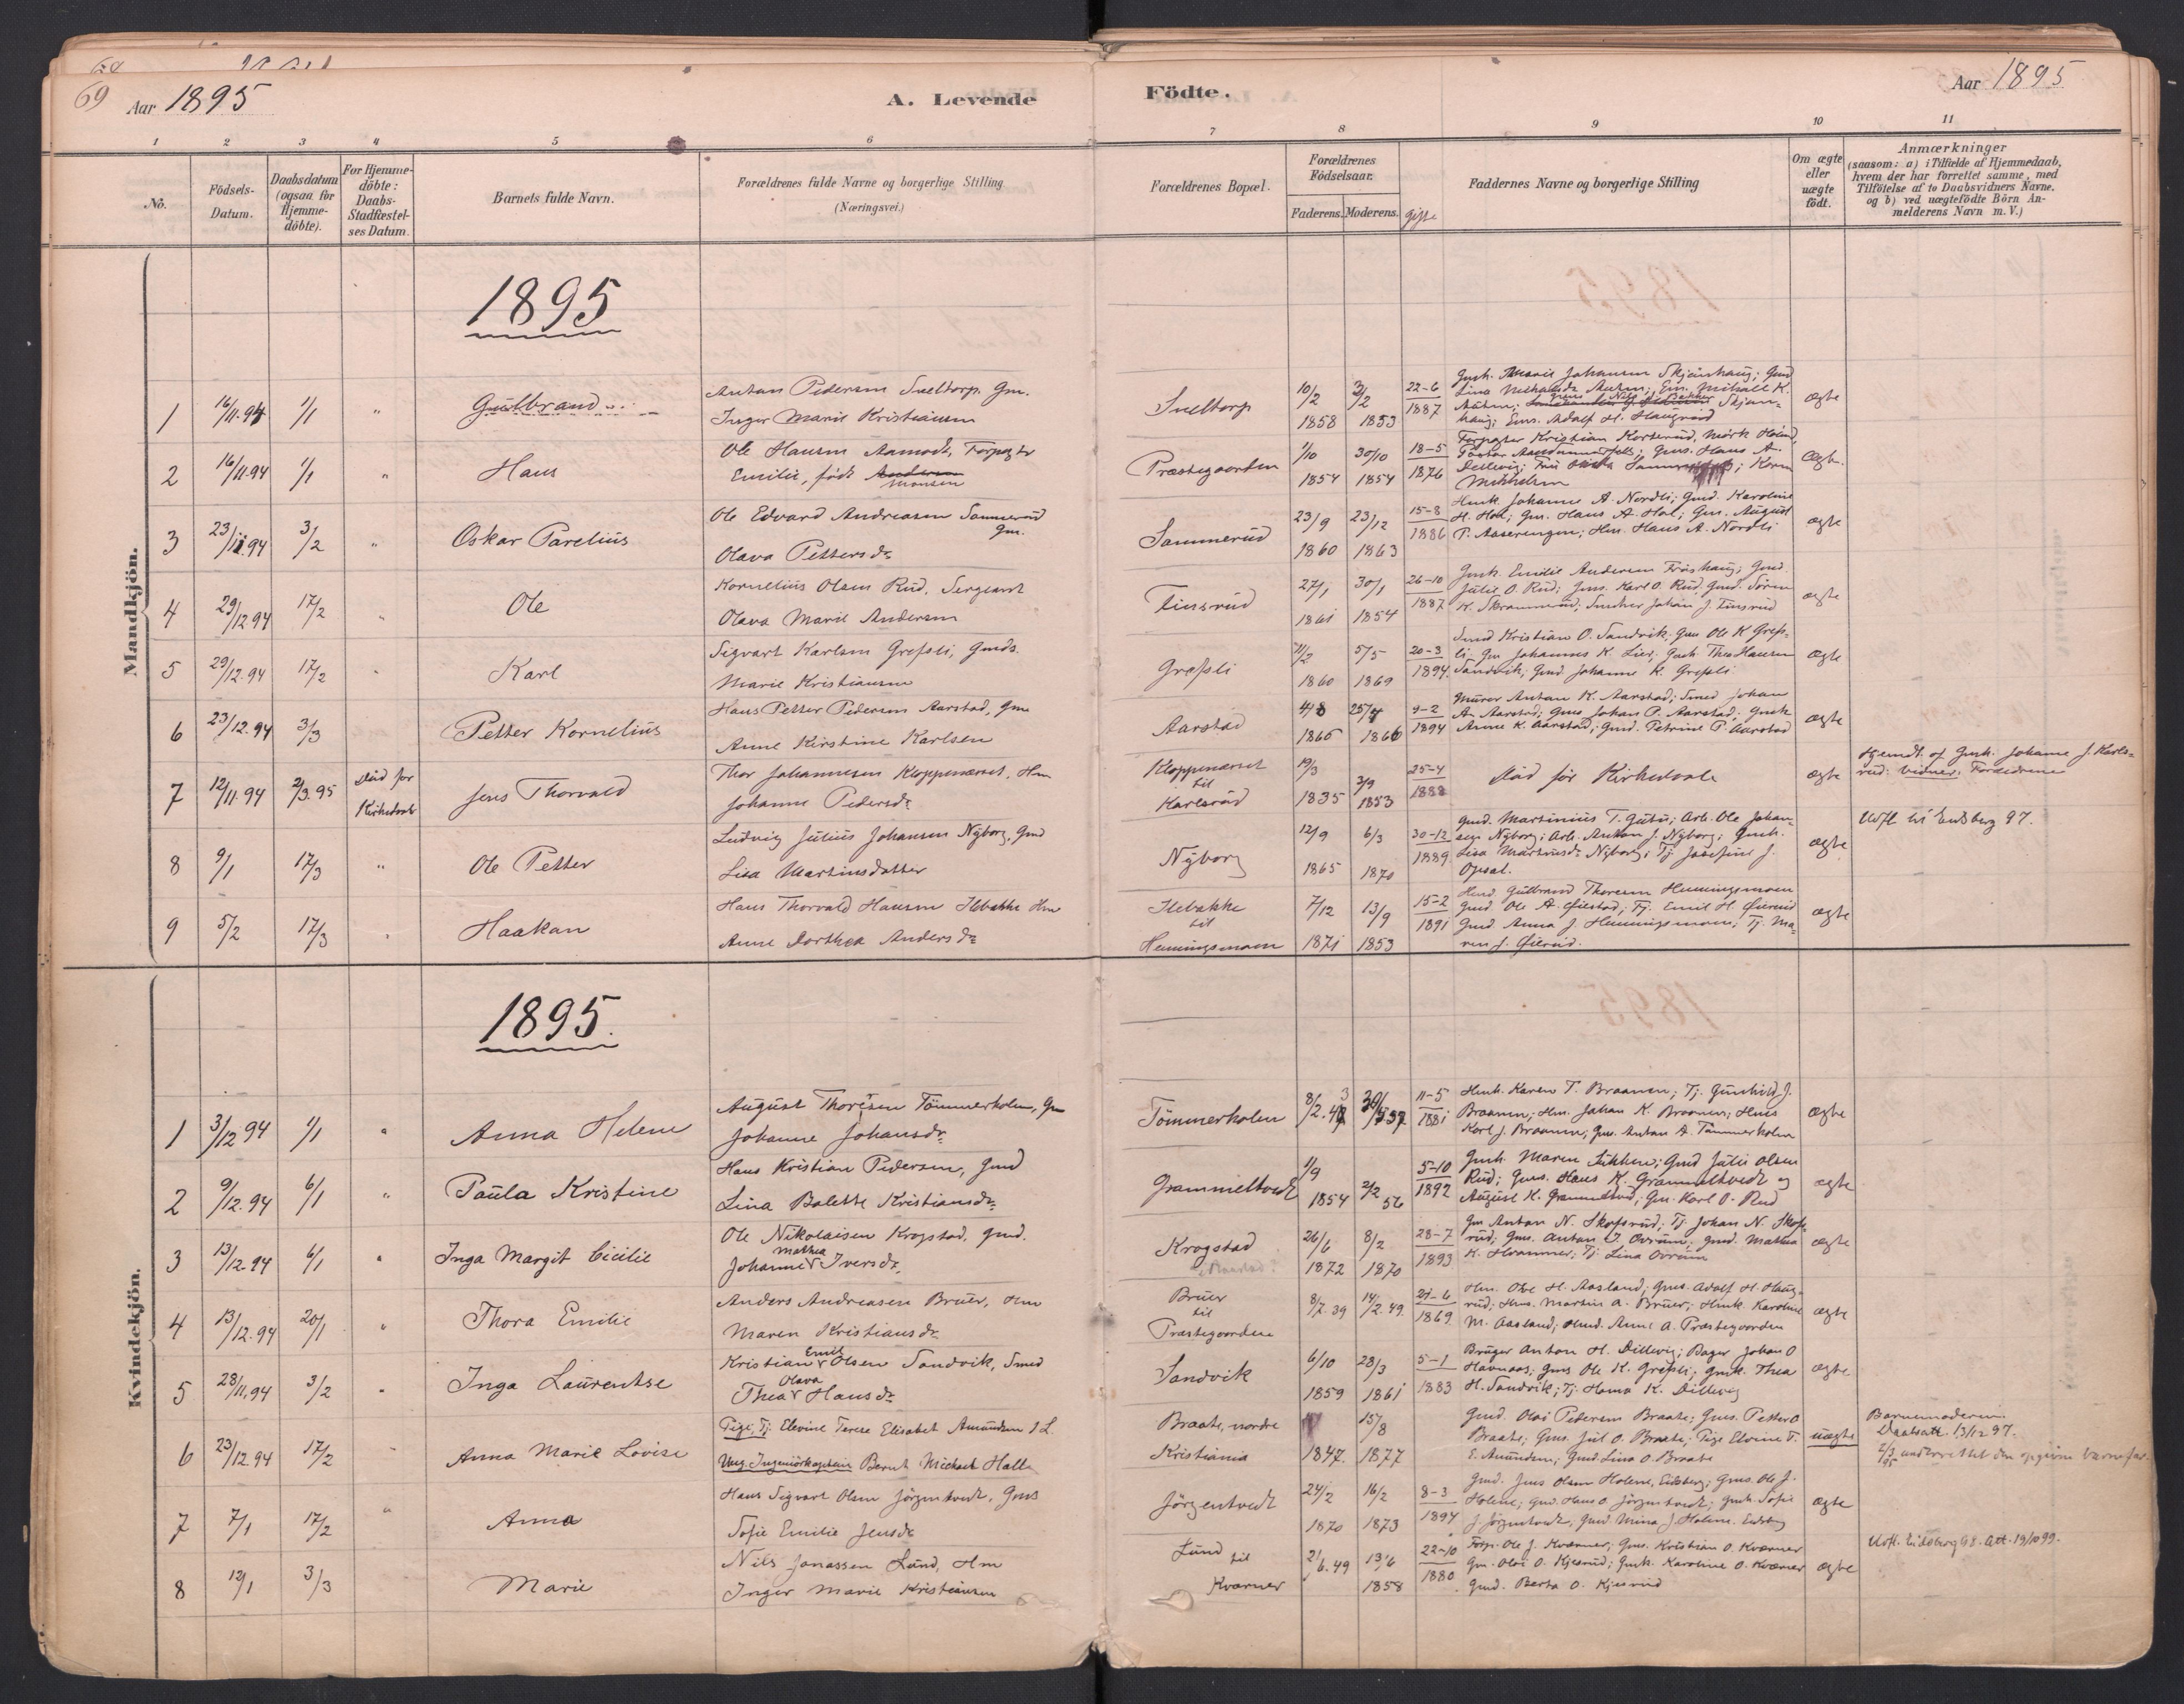 69
Aar 1895
A. Levende
Födte.
Aar 1895
1 2 3 4 5 6 7 8 9 10 11
No.
Födsels-
Datum.
Daabsdatum
(ogsaa for
Hjemme-
döbte).
For Hjemme-
döbte:
Daabs-
Stadfæstel-
ses Datum.
Barnets fulde Navn.
Forældrenes fulde Navne og borgerlige Stilling
(Næringsvei.)
Forældrenes Bopæl.
Forældrenes
Födselsaar.
Faderens. Moderens. gifte
Faddernes Navne og borgerlige Stilling
Om ægte
eller
uægte
födt.
Anmærkninger
(saasom: a) i Tilfælde af Hjemmedaab,
hvem der har forrettet samme, med
Tilföielse af to Daabsvidners Navne.
og b) ved uægtefödte Börn An-
melderens Navn m. V.)
Mandkjön.
1895
1 16/11.94 1/1 " Gulbrand
Anton Pedersen Sneltorp. Gm.
Inger Marie Kristiansen
Sneltorp
10/2 1858 3/2 1853 22-6 1887
ægte
2 16/11.94 1/1 " Hans
Ole Hansen Aamodt, Forpagter
Emilie, født Andersen
Monsen
Præstegaarden
1/10 1854 30/10 1854 18-5 1876
ægte
3 23/11.94 3/2 " Oskar Parelius
Ole Edvard Andreasen Sammerud
Gm.
Olava Pettersdr
Sammerud
23/9 1860 23/12 1863 15-8 1886
Hmk. Johanne A. Nordli; Gmd. Karoline
H. Hol; Gm. Hans A. Hol; Gm. August
P. Aaserengen; Hm. Hans A. Nordli
ægte
4 29/12.94 17/2 " Ole
Kornelius Olsen Rud, Sergeant
Olava Marie Andersen
Finsrud
27/1 1861 30/1 1854 26-10 1887
Gmk. Emilie Andersen Fröshaug; Gmd.
Julie O. Rud; Gms. Karl O. Rud, Gmd. Sörine
K. Skrammerud; Snedker Johan J. Finsrud
ægte
5 29/12.94 17/2 " Karl
Sigvart Karlsen Grefsli, Gmds.
Marie Kristiansen
Grefsli
1860 5/5 1869 20-3 1894
Smed Kristian O. Sandvik; Gms Ole K Grefs-
li; Gm Johannes K. Lier; Gmk. Thea Hansen
Sandvik; Gmd Johanne K. Grefsli
ægte
6 23/12.94 3/3 Petter Kornelius
Hans Petter Pedersen Aarstad, Gm
Anne Kirstine Karlsen
Aarstad
4/8 1866 25/4 1866 9-2 1894
Murer Anton K. Aarstad; Smed Johan
A. Aarstad; Gms Johan P. Aarstad; Gmk
Anne K. Aarstad; Gmd. Petrine P. Aarstad
ægte
7 12/11.94 2/3.95 död før
Kirkedaab
Jens Thorvald
Thor Johannesen Kloppenæset, Hm
Johanne Pedersdr
Kloppenæset
til
Karlsrud
19/3 1835 3/9 1853 25-4 1888
död før Kirkedaab
ægte
Hjemdt. af Gmk. Johanne J. Karls-
rud. Vidner: Forældrene
8 9/1 17/3 " Ole Petter
Ludvig Julius Johansen Nyborg, Gmd
Lisa Martinsdatter
Nyborg
12/9 1865 6/3 1870 30-12 1889
Gmd. Martinius T. Gutu; Arb. Ole Johan-
sen Nyborg; Arb. Anton J. Nyborg; Gmk.
Lisa Martinsdr Nyborg; Tj. Josefine J.
Opsal.
ægte
Utfl. til Eidsberg 97.
9 5/2 17/3 Haakan
Hans Thorvald Hansen Ilebakke Hm
Anne Dorthea Andersdr
Ilebakke
til
Hemingsmoen
7/12 1871 13/9 1853 15-2 1891
Hmd Gulbrand Thoresen Hemingsmoen
Gmd Ole A. Øiestad; Tj. Emil H. Øierud
Gmd Anna J. Hemingsmoen; Tj. Ma-
ren J. Øierud.
ægte
Kvindekjön.
1895.
1 3/12 94 1/1 " Anna Helene
August Thoresen Tömmerholen, Gm
Johanne Johansdr
Tömmerholen
11-5 1881
Hmk. Karen T. Braanen; Tj. Gunhild J.
Braanen; Hm. Johan K. Braanen; Hms
Karl J. Braanen; Gms. Anton A. Tömmerholen
ægte
2 9/12.94 6/1 " Paula Kristine
Hans Kristian Pedersen, Gmd
Lina Balette Kristiansdr
Grammeltvedt
1/9 1854 2/2 56 5-10 1892
Gmk. Maren Likken; Gmd Julie Olsen
Rud; Gms. Hans K. Grammeltvedt og
August K. Grammeltvedt; Gm. Karl O. Rud
ægte
3 13/12.94 6/1 " Inga Margit Cicilie
Ole Nikolaisen Krogstad, Gmd.
Mathea
Johanne Iversdr
Krogstad
26/6 1872 8/2 1870 28-7 1893
Gm Anton N. Skofsrud; Tj. Johan N. Skofs-
rud; Gms. Anton I. Ovrum; Gmd. Mathea
K. Hvammer; Tj. Lina Ovrum
ægte
4 13/12.94 20/1 " Thora Emilie
Anders Andreasen Bruer, Hm
Maren Kristiansdr
Bruer
til
Præstegaarden
8/7.39 14/2.49 21-6 1869
Hm. Ole H. Aasland; Gms. Adolf H. Haug-
rud; Hms. Martin A. Bruer; Hmk. Karoline
M. Aasland; Hmd. Anne A. Præstegaarden
ægte
5 28/11.94 3/2 " Inga Laurentse
Emil
Kristian Olsen Sandvik, Smed
Olava
Thea Hansdr
Sandvik
6/10 1859 28/3 1861 5-1 1883
Bruger Anton H. Dillevig; Bager Johan O
Havnaas; Gms Ole K. Grefsli; Gmk. Thea
H. Sandvik; Tj. Hanna K. Dillevig
ægte
6 23/12.94 17/2 Anna Marie Lovise
Pige, Tj. Elevine Terese Elisabet Amundsen
Ung. Ingeniörkaptein Bernt Michael Halle
Braate, nordre
Kristiania
1847. 15/8 1877
Gmd. Olai Pedersen Braate; Gms. Petter O
Braate; Gms. Jul O. Braate; Pige Elvine T.
E. Amundsen; Gmd Lina O. Braate
uægte
Barnemoderen.
Daabsatt. 13/12 97.
2/3 95 underrettet den opgivne barnefar.
7 7/1 17/2 " Anna
Hans Sigvart Olsen Jörgentvedt, Gms
Sofie Emilie Jensdr
Jörgentvedt
24/2 1870 16/2 1873 8-3 1894
Gmd. Jens Olsen Holene, Eidsberg; Gms. Ole J.
Holene; Gms. Hans O. Jörgentvedt; Gmk. Sofie
J. Jörgentvedt; Gmd. Mina J Holene. Eidsberg
ægte
8 12/1 3/3 Marie
Nils Jonassen Lund, Hm
Inger Marie Kristiansen
Lund
til
Kværner
2/6.49 13/6 1858 22-10 1880
Forp. Ole J. Kværner; Gms. Kristian O. Kværner
Gm. Olai O. Kjesrud; Gmk. Karoline O. Kværner
Gmd. Berta O. Kjesrud
ægte
Utfl. Eidsberg 98. Att. 19/10 99.